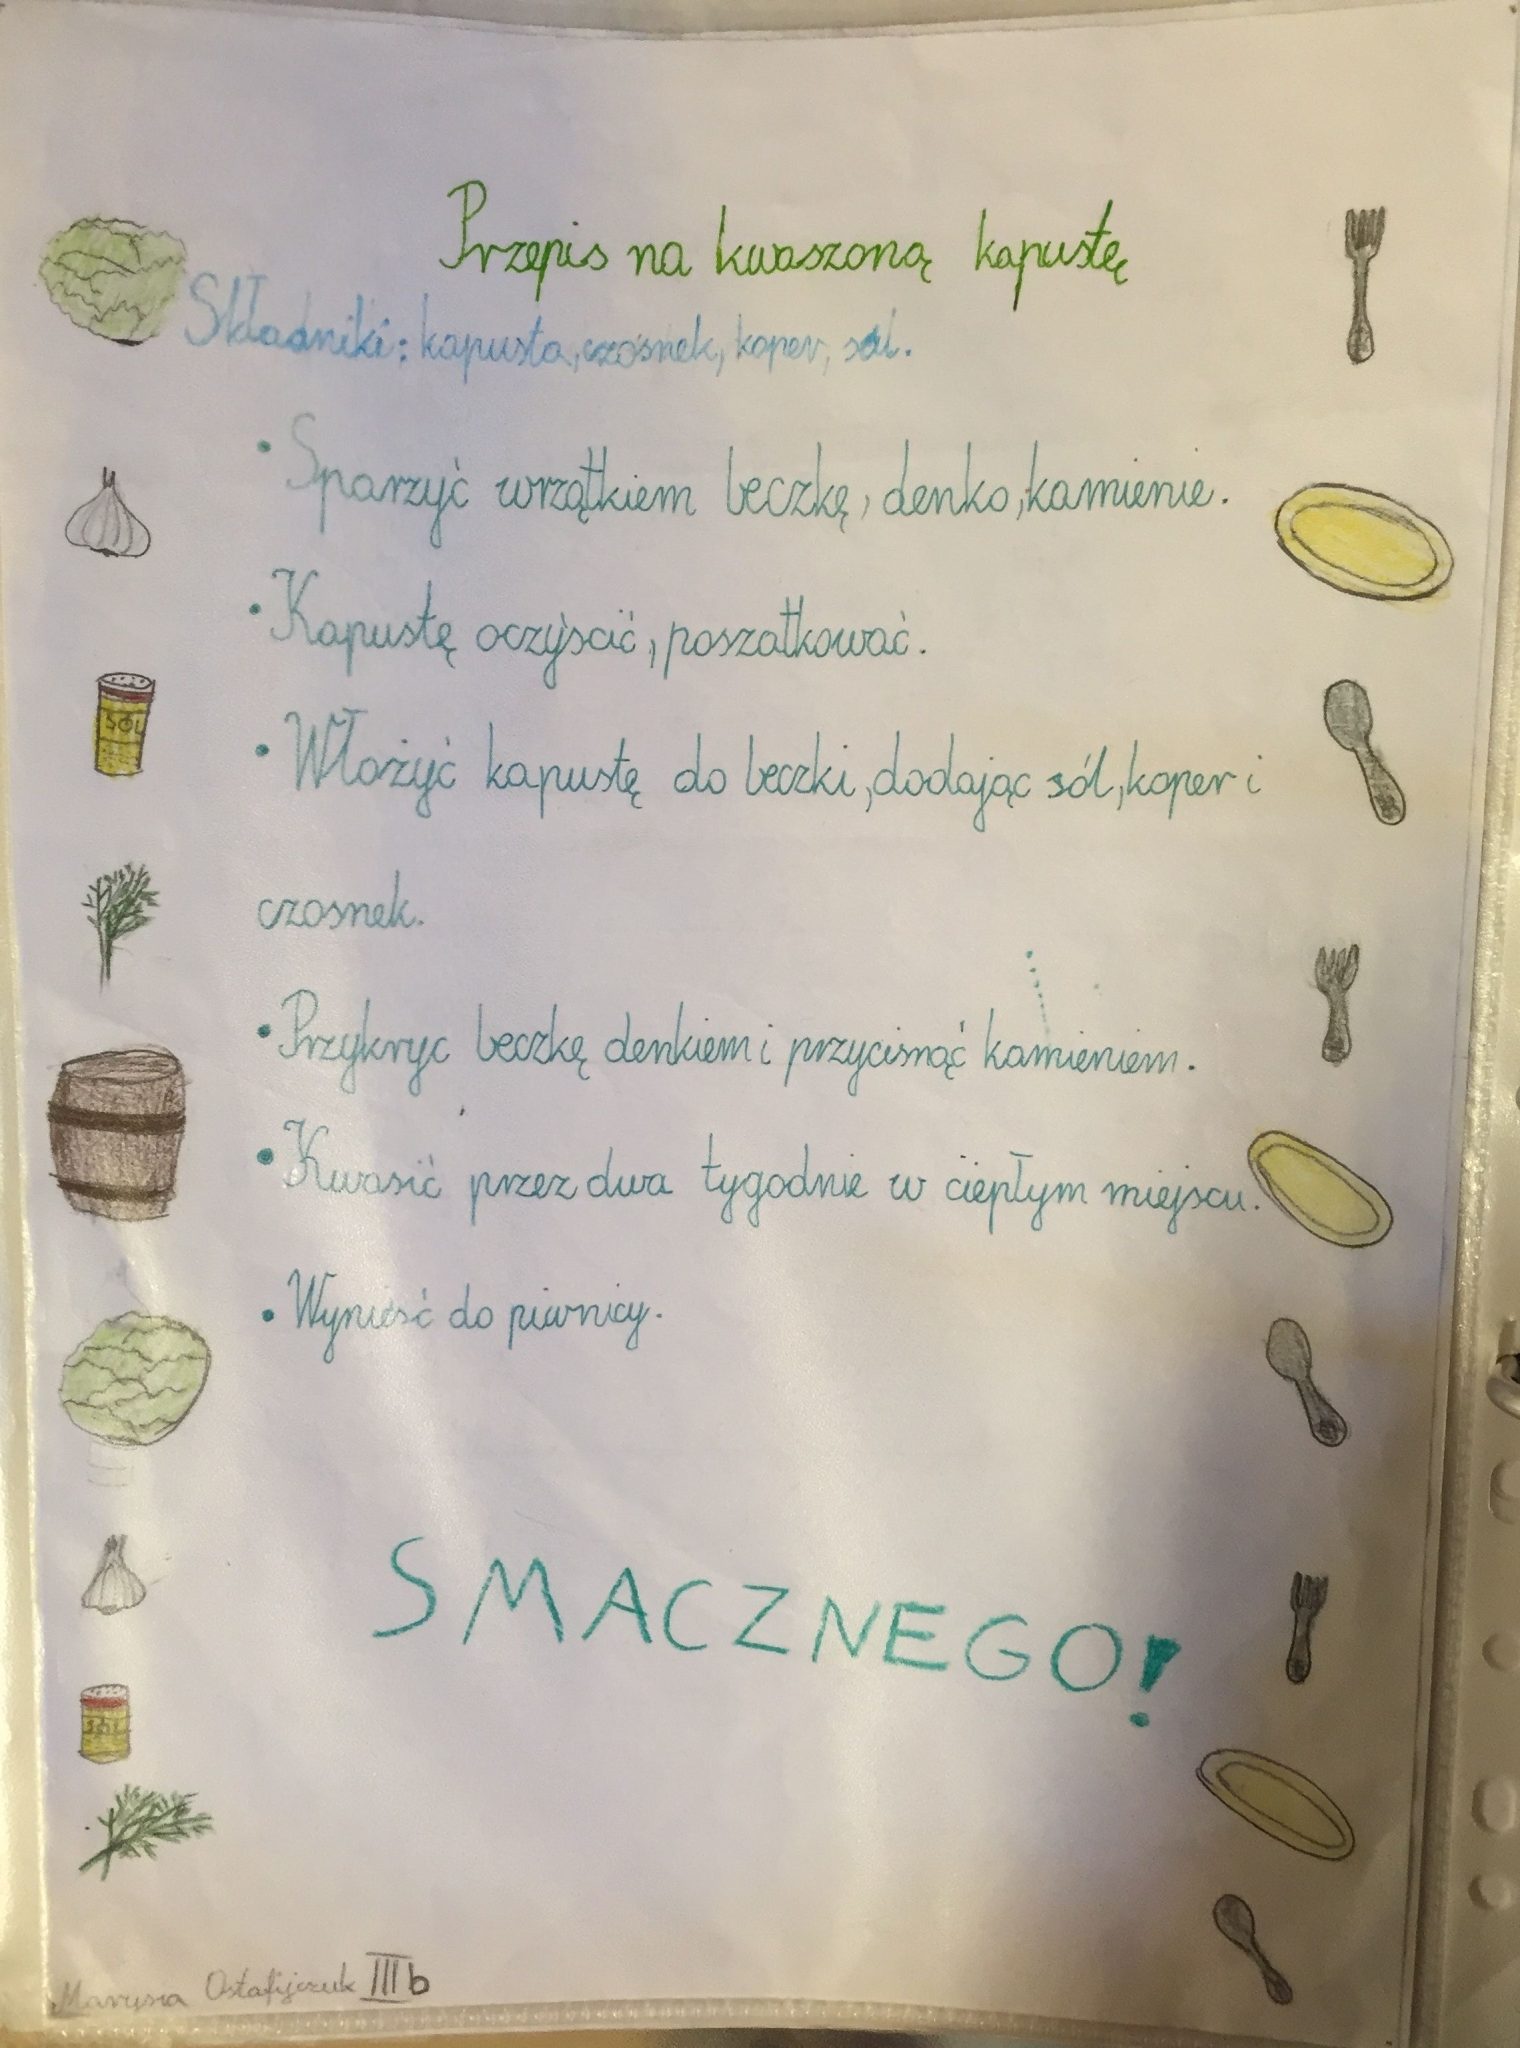 Przepis na kwaszoną kapustę
Składniki: kapusta, czosnek, koper, sól.
• Sparzyć wrzątkiem beczkę, denko, kamienie.
• Kapustę oczyścić, poszatkować.
SÓL
• Włożyć kapustę do beczki, dodając sól, koper i
czosnek.
• Przykryc beczkę denkiem i przycisnąć kamieniem.
• Kwasić przez dwa tygodnie w ciepłym miejscu.
• Wynieść do piwnicy.
SMACZNEGO!
SÓL
Marysia Ostafijczuk III b